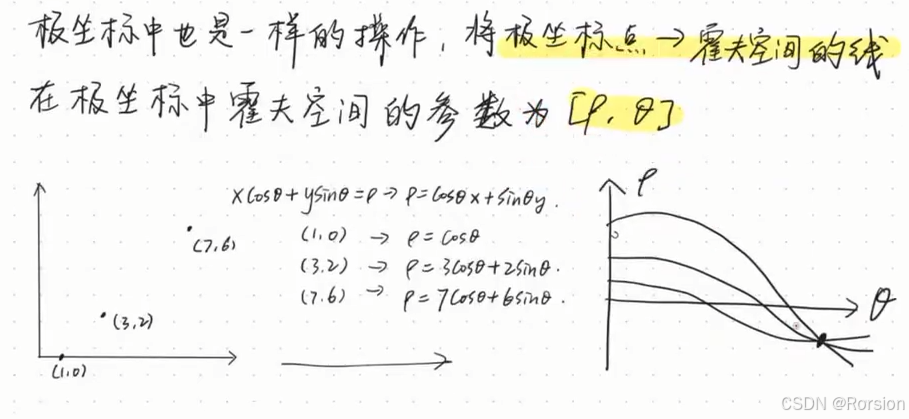 极坐标中也是一样的操作, 将极坐标点→霍夫空间的线
在极坐标中霍夫空间的参数为[ρ, θ]
xcosθ+ysinθ=ρ → ρ=cosθx+sinθy.
(1,0) → ρ=cosθ
(3.2) → ρ=3cosθ+2sinθ.
(7.6) → ρ=7cosθ+6sinθ.
(7,6)
(3,2)
(1,0)
ρ
θ
CSDN @Rorsion